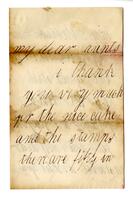 my dear aunts
i thank
you very much
for the nice cake
and the stamps
there are fifty in